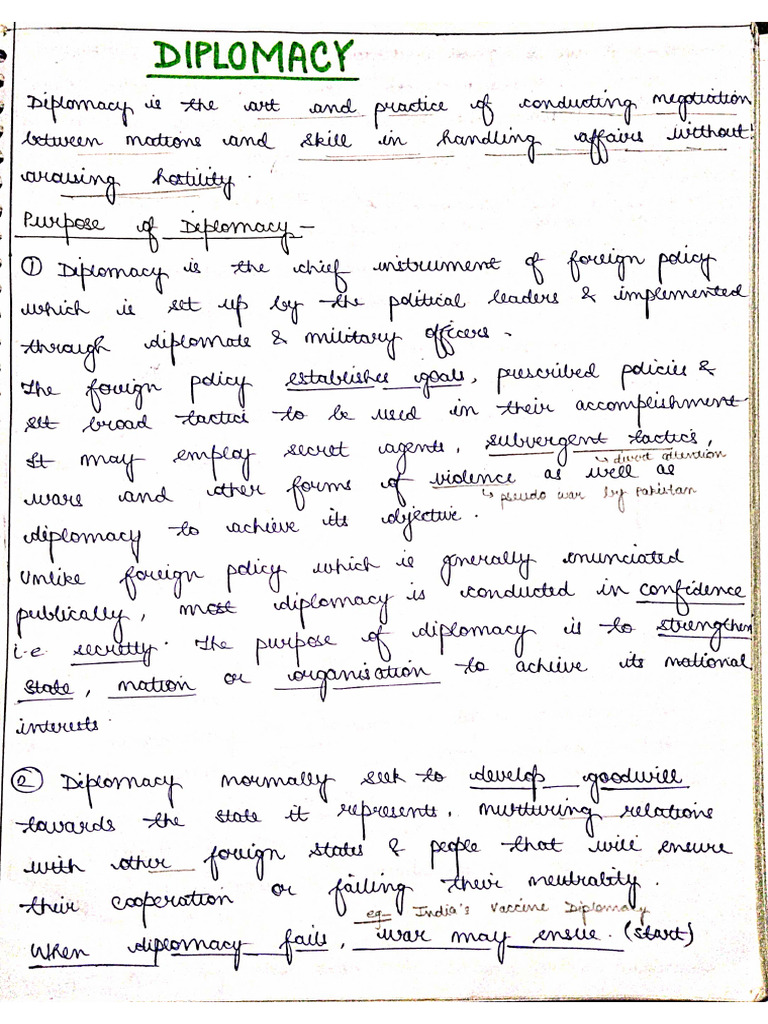 DIPLOMACY
Diplomacy is the art and practice of conducting negotiation
between nations and skill in handling affairs without
arousing hostility.
Purpose of Diplomacy -
① Diplomacy is the chief instrument of foreign policy
which is set up by the political leaders & implemented
through diplomate & military officers.
The foreign policy establishes goals, prescribed policies &
set broad tactics to be used in their accomplishment.
It may employ secret agents, subvergent tactics,
↳ divert attention
wars and other forms of violence as well as
↳ pseudo war by Pakistan
diplomacy to achieve its objective.
Unlike foreign policy which is generally enunciated
publically, most diplomacy is conducted in confidence
i.e secretly. The purpose of diplomacy is to strengthen
state, nation or organisation to achieve its national
interests.
② Diplomacy normally seek to develop goodwill
towards the state it represents, nurturing relations
with other foreign states & people that will ensure
their cooperation or failing their neutrality.
eg- India's Vaccine Diplomacy
When diplomacy fails, war may ensue. (start)